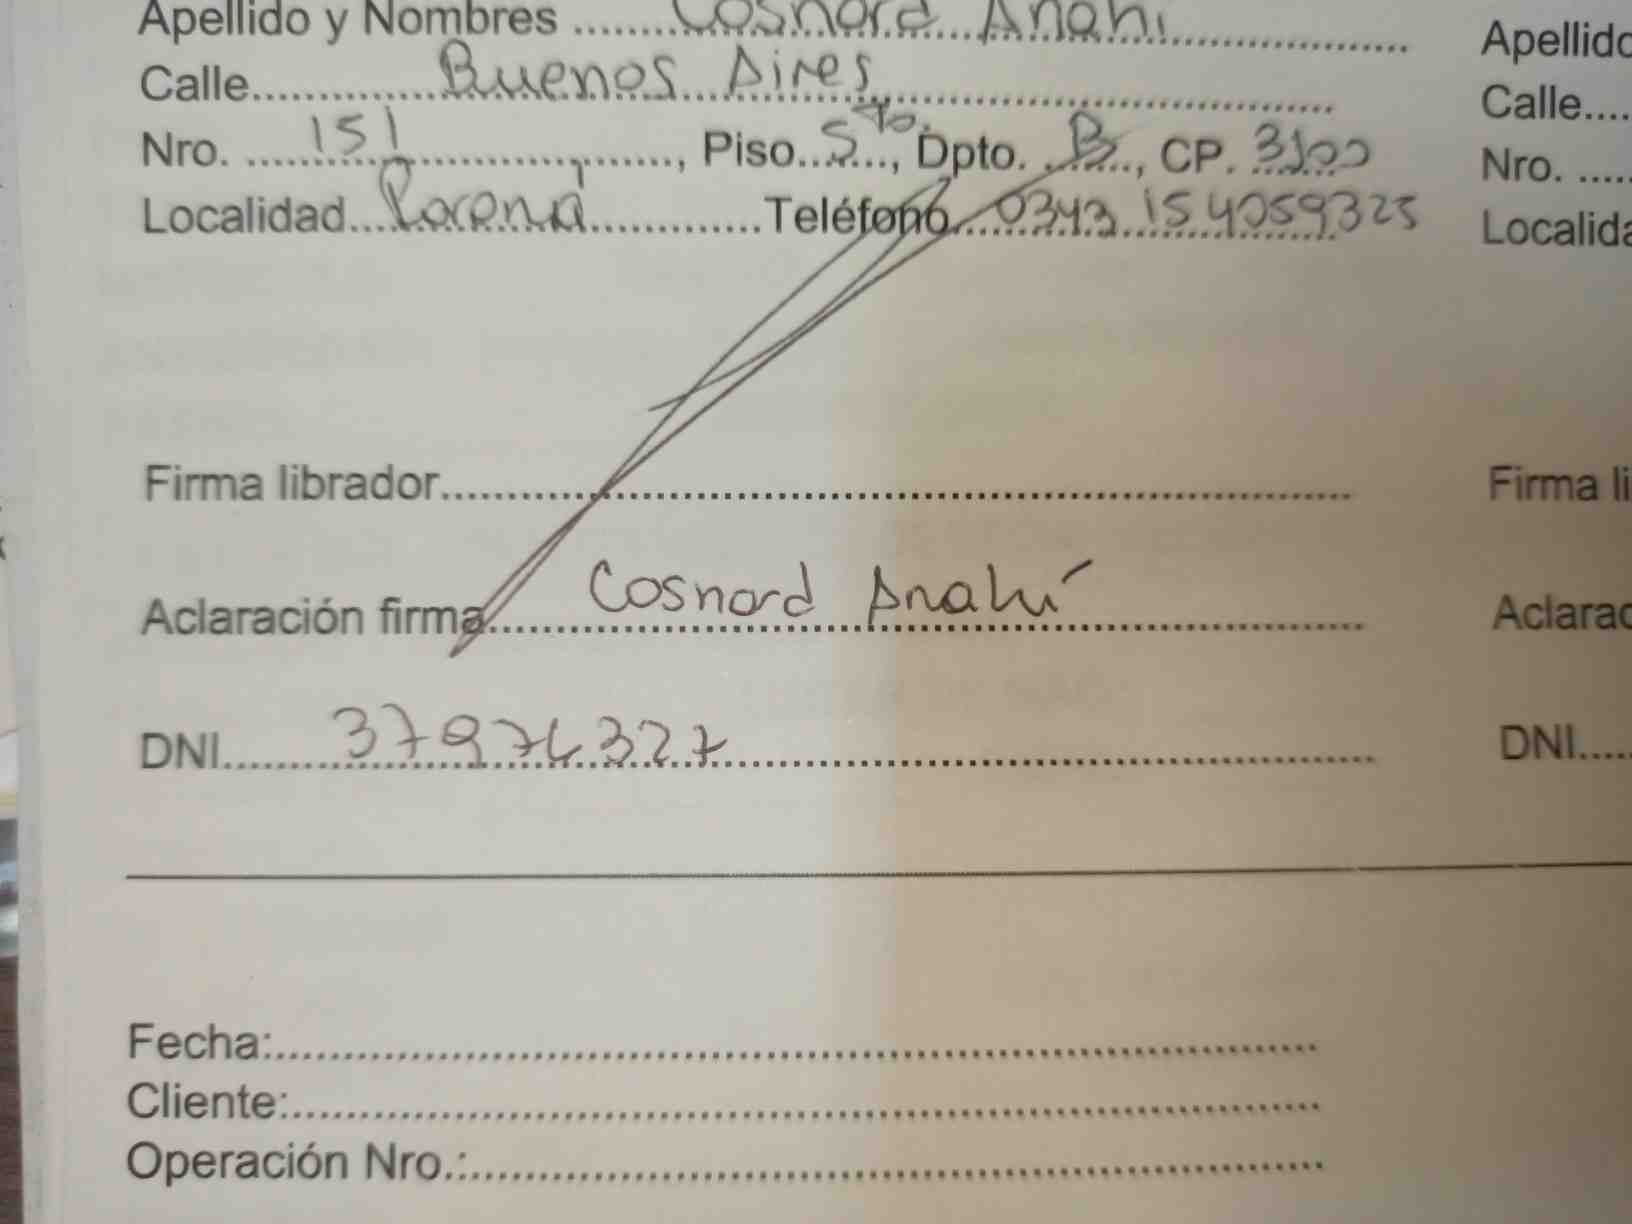 Apellido y Nombres Cosnard Anahí
Calle Buenos Aires
Nro. 151, Piso 5to., Dpto. B, CP. 3100
Localidad Paraná Teléfono 0343 154059325
Firma librador
Aclaración firma Cosnard Anahí
DNI 37974327
Fecha:
Cliente:
Operación Nro.:
Apellido
Calle
Nro.
Localida
Firma li
Aclarac
DNI